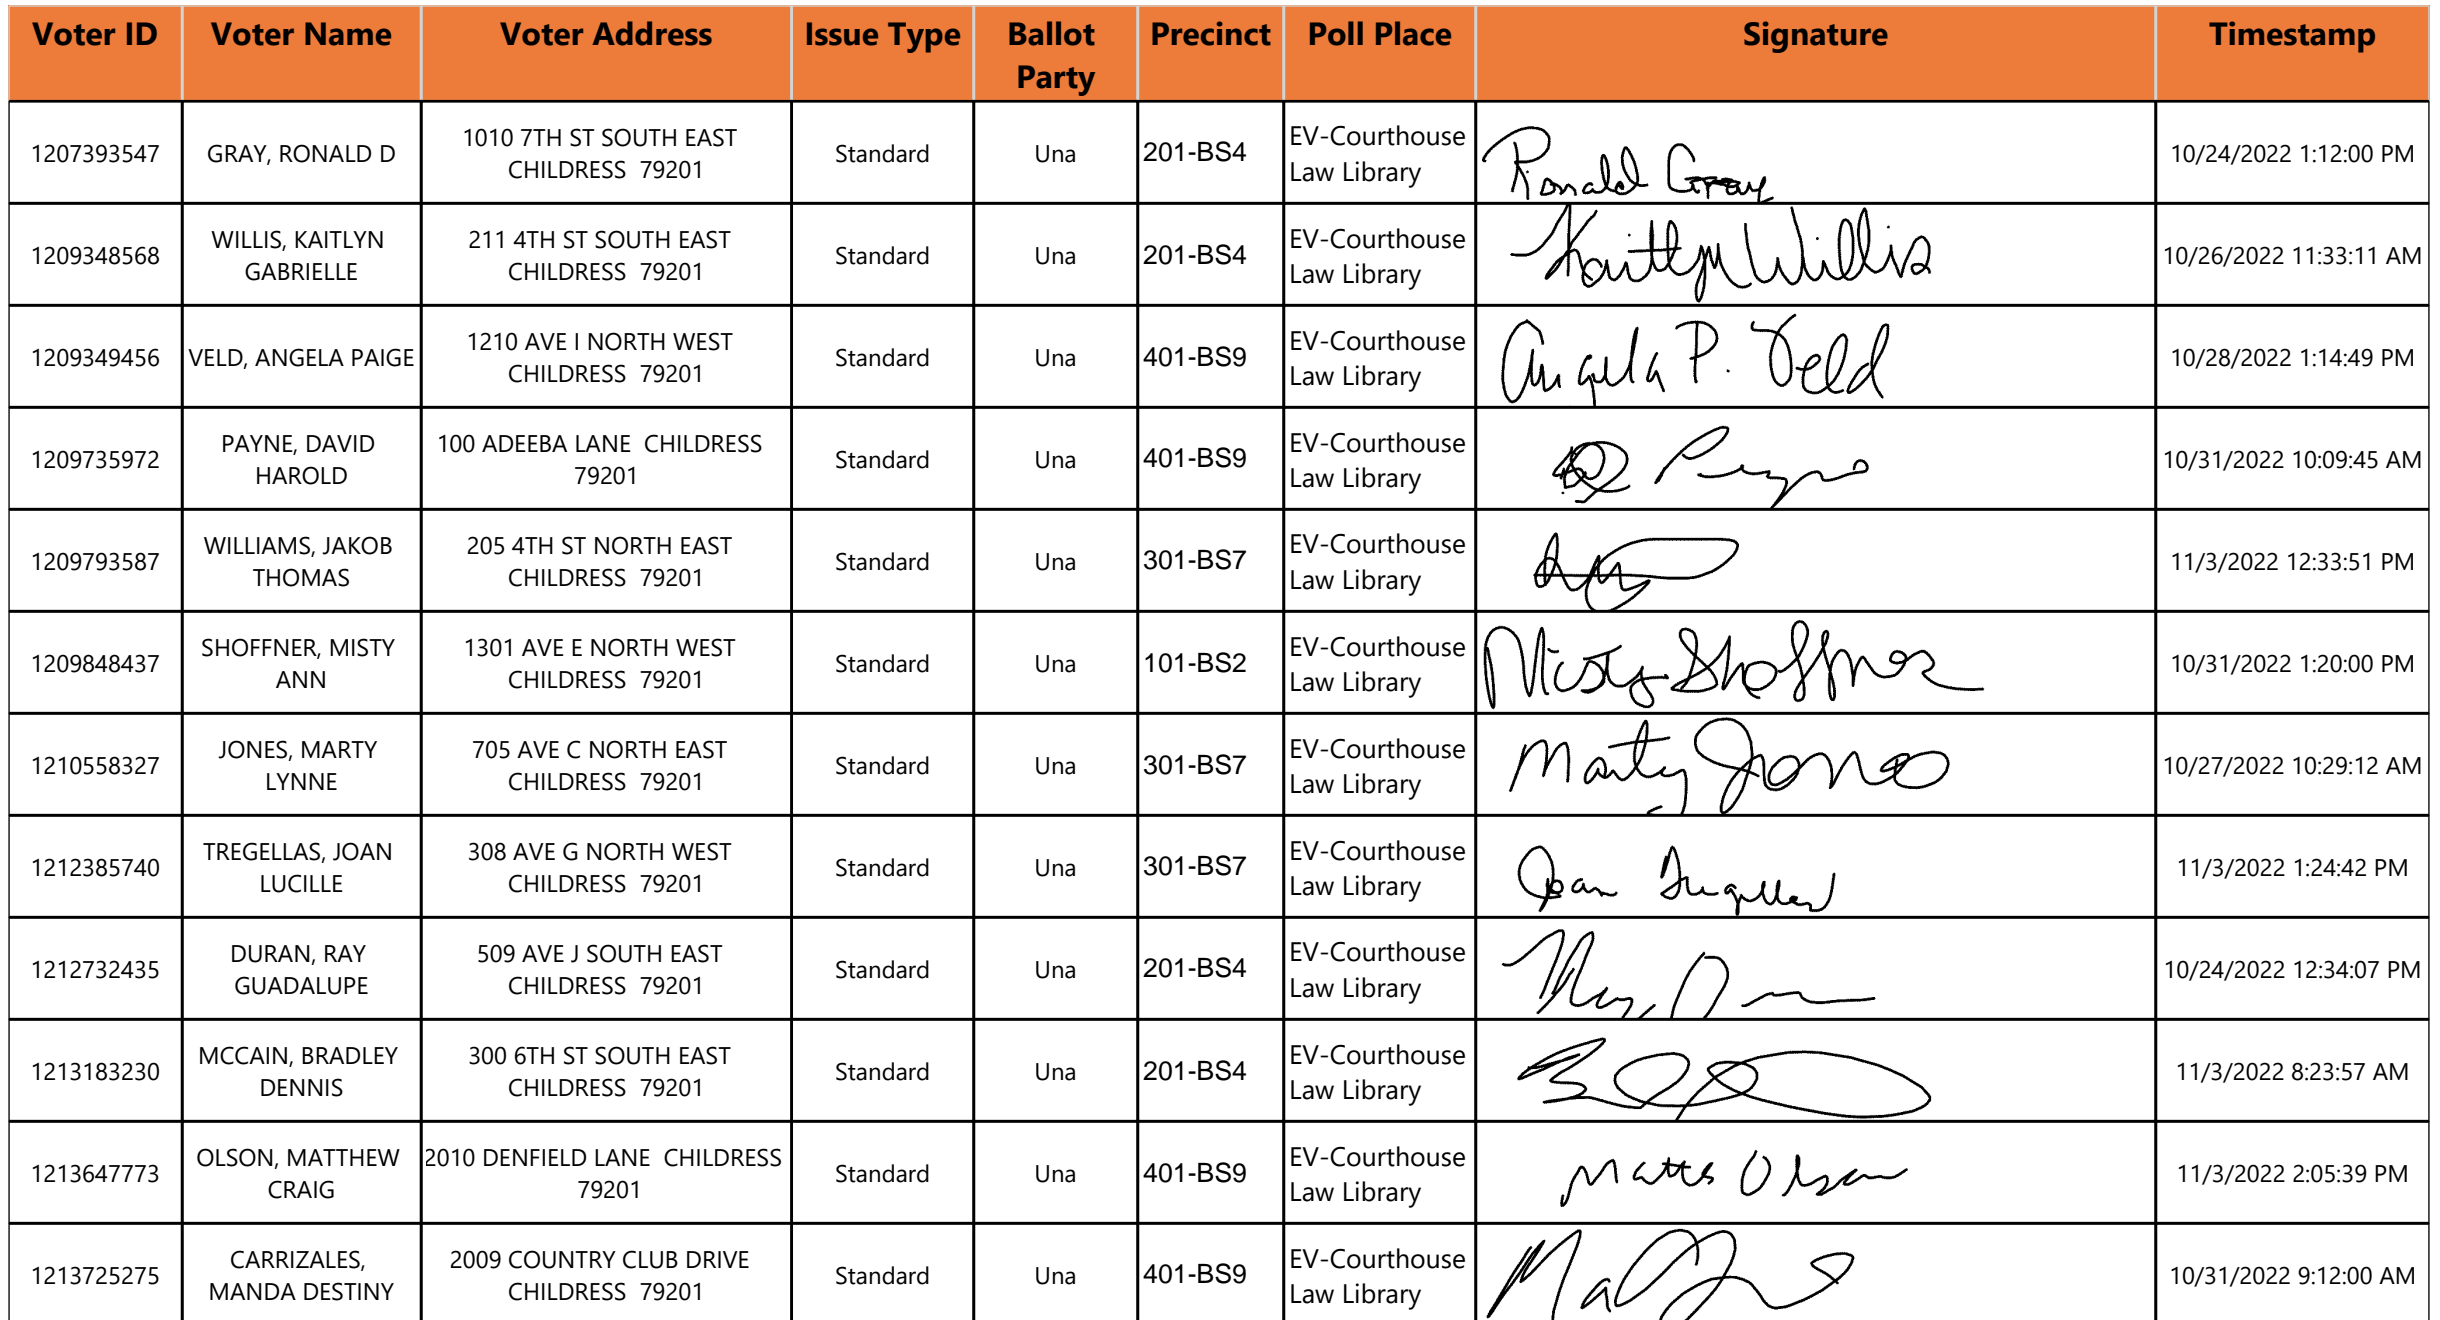 Voter ID Voter Name Voter Address Issue Type Ballot Party Precinct Poll Place Signature Timestamp
1207393547 GRAY, RONALD D 1010 7TH ST SOUTH EAST CHILDRESS 79201 Standard Una 201-BS4 EV-Courthouse Law Library Ronald Gray 10/24/2022 1:12:00 PM
1209348568 WILLIS, KAITLYN GABRIELLE 211 4TH ST SOUTH EAST CHILDRESS 79201 Standard Una 201-BS4 EV-Courthouse Law Library Kaitlyn Willis 10/26/2022 11:33:11 AM
1209349456 VELD, ANGELA PAIGE 1210 AVE I NORTH WEST CHILDRESS 79201 Standard Una 401-BS9 EV-Courthouse Law Library Angela P. Veld 10/28/2022 1:14:49 PM
1209735972 PAYNE, DAVID HAROLD 100 ADEEBA LANE CHILDRESS 79201 Standard Una 401-BS9 EV-Courthouse Law Library 10/31/2022 10:09:45 AM
1209793587 WILLIAMS, JAKOB THOMAS 205 4TH ST NORTH EAST CHILDRESS 79201 Standard Una 301-BS7 EV-Courthouse Law Library 11/3/2022 12:33:51 PM
1209848437 SHOFFNER, MISTY ANN 1301 AVE E NORTH WEST CHILDRESS 79201 Standard Una 101-BS2 EV-Courthouse Law Library Misty Shoffner 10/31/2022 1:20:00 PM
1210558327 JONES, MARTY LYNNE 705 AVE C NORTH EAST CHILDRESS 79201 Standard Una 301-BS7 EV-Courthouse Law Library Marty Jones 10/27/2022 10:29:12 AM
1212385740 TREGELLAS, JOAN LUCILLE 308 AVE G NORTH WEST CHILDRESS 79201 Standard Una 301-BS7 EV-Courthouse Law Library Joan Tregellas 11/3/2022 1:24:42 PM
1212732435 DURAN, RAY GUADALUPE 509 AVE J SOUTH EAST CHILDRESS 79201 Standard Una 201-BS4 EV-Courthouse Law Library 10/24/2022 12:34:07 PM
1213183230 MCCAIN, BRADLEY DENNIS 300 6TH ST SOUTH EAST CHILDRESS 79201 Standard Una 201-BS4 EV-Courthouse Law Library 11/3/2022 8:23:57 AM
1213647773 OLSON, MATTHEW CRAIG 2010 DENFIELD LANE CHILDRESS 79201 Standard Una 401-BS9 EV-Courthouse Law Library Olson 11/3/2022 2:05:39 PM
1213725275 CARRIZALES, MANDA DESTINY 2009 COUNTRY CLUB DRIVE CHILDRESS 79201 Standard Una 401-BS9 EV-Courthouse Law Library 10/31/2022 9:12:00 AM